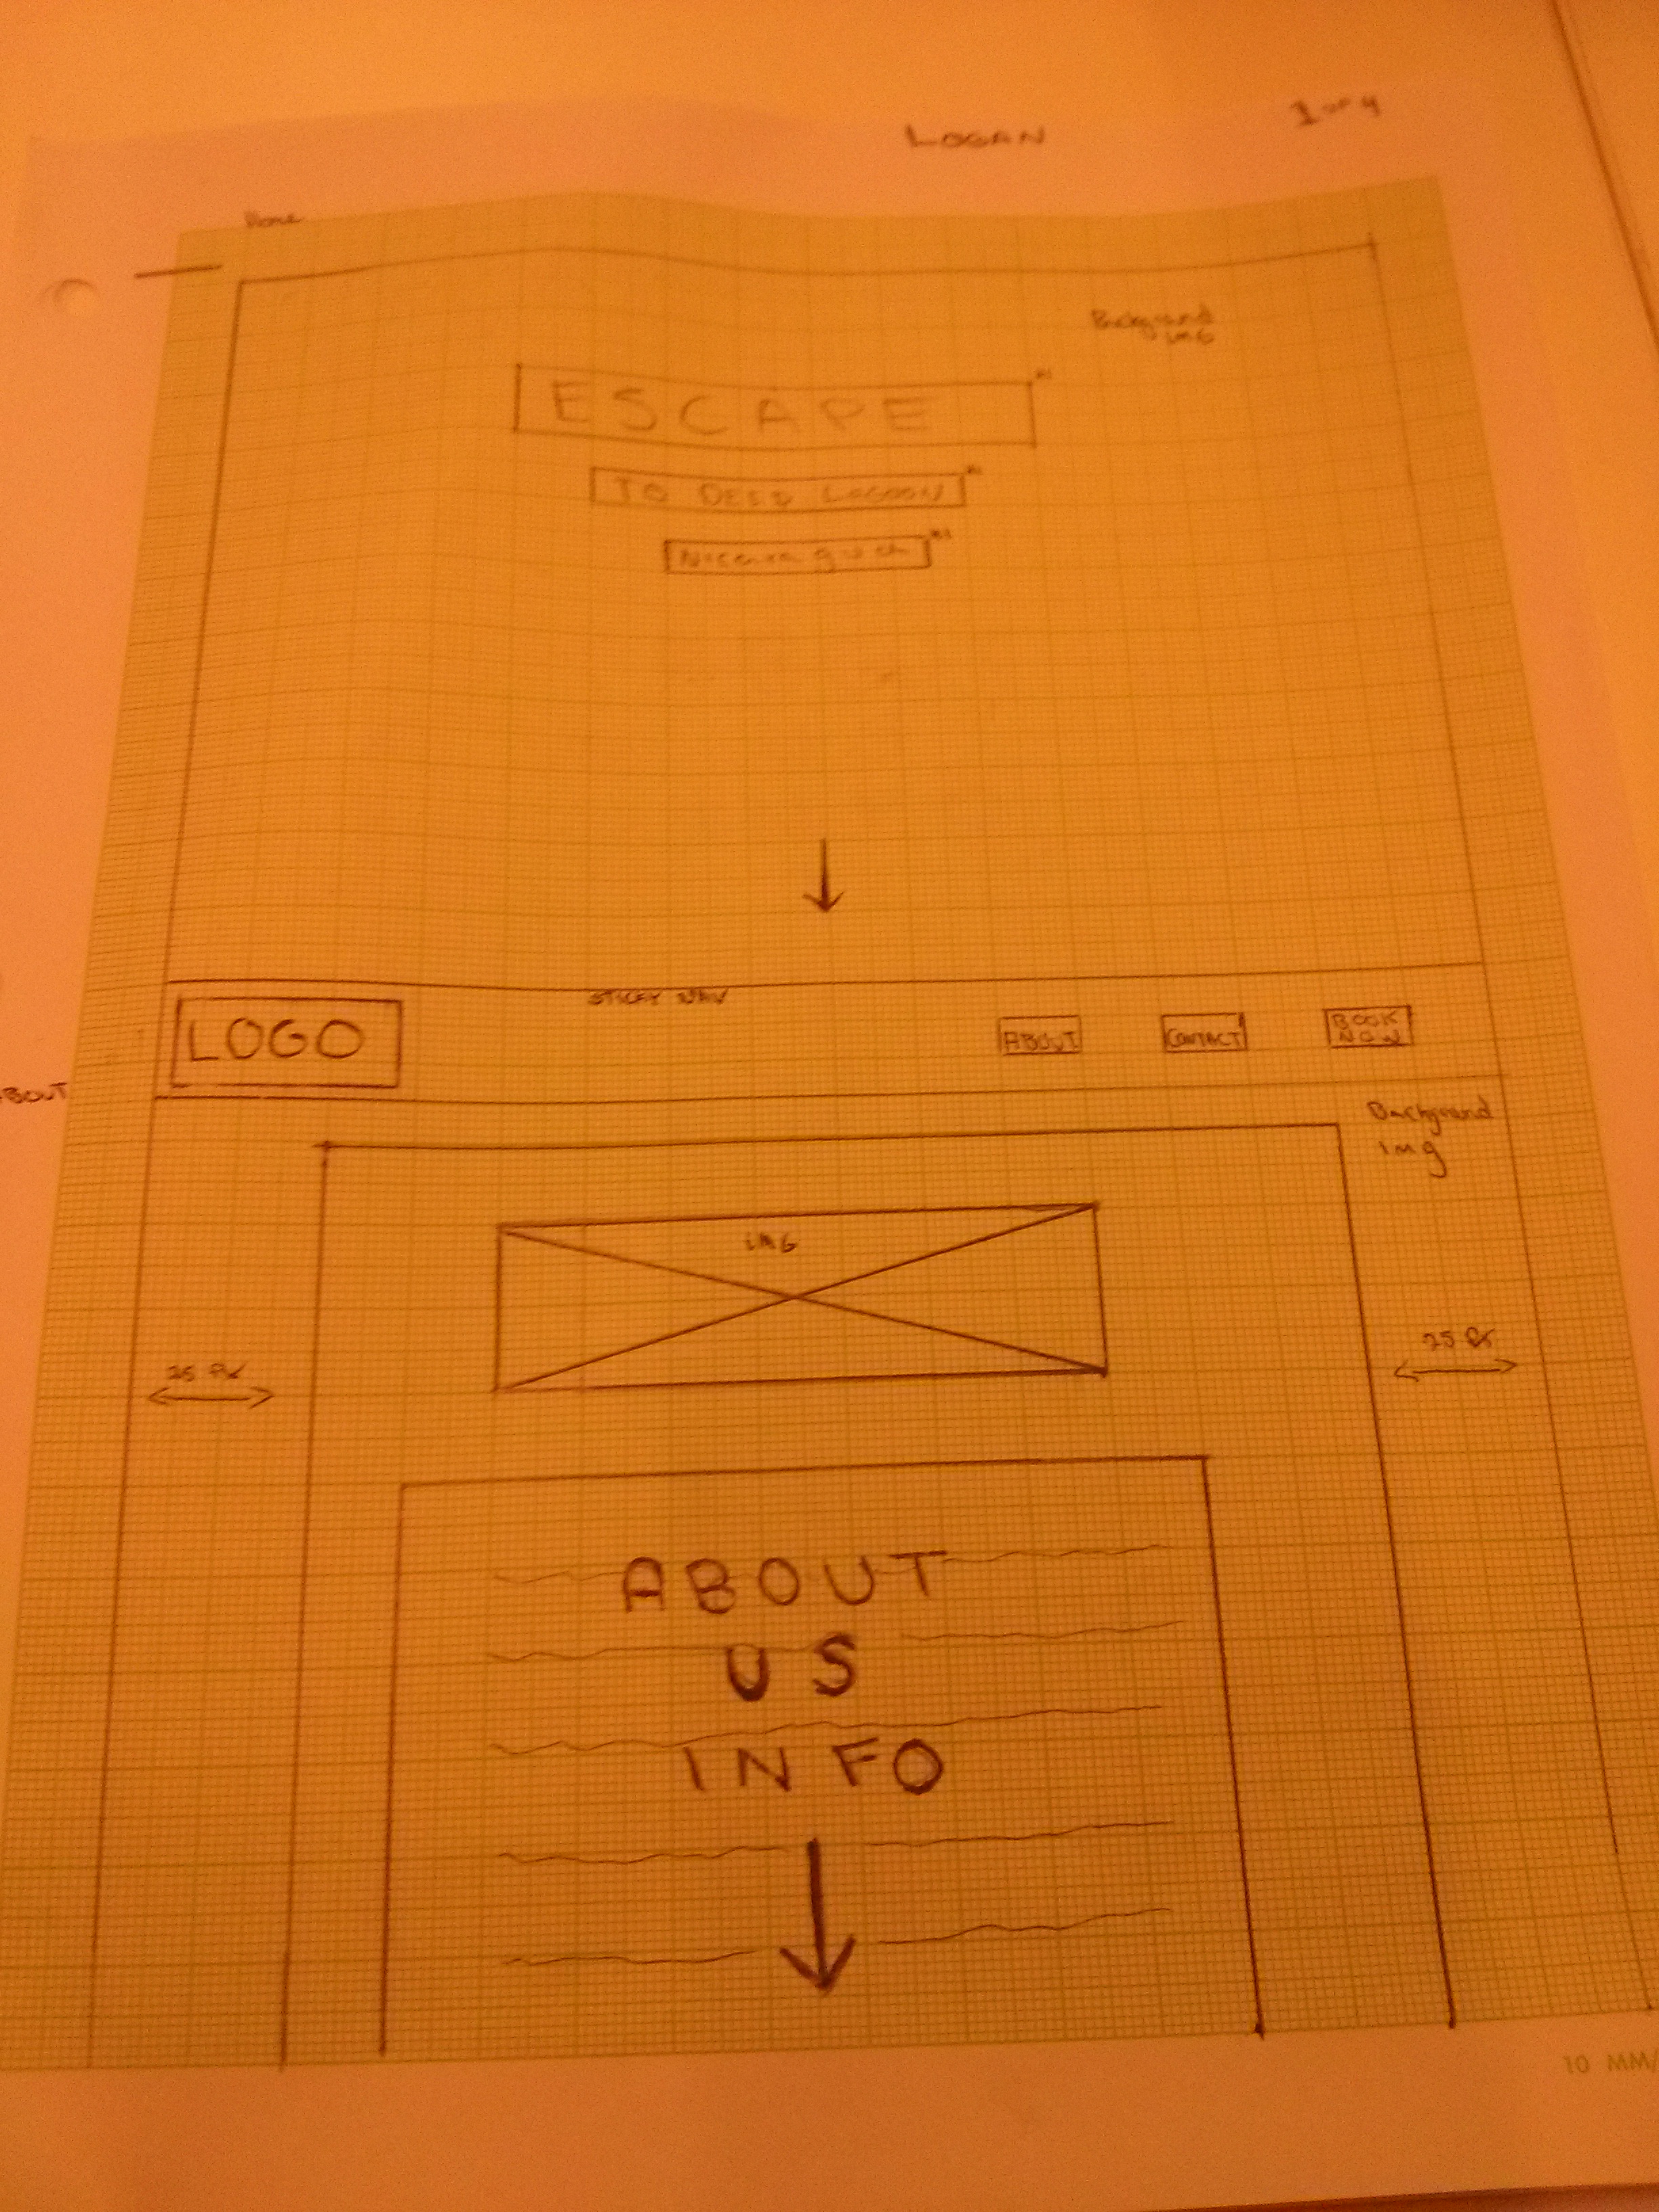 LOGAN
1 OF 4
Home
Background
IMG
ESCAPE
TO DEEP LAGOON
STICKY NAV
LOGO
ABOUT
CONTACT
BOOK
NOW
BOUT
Background
img
IMG
25 PX
25 PX
ABOUT
US
INFO
10 MM/